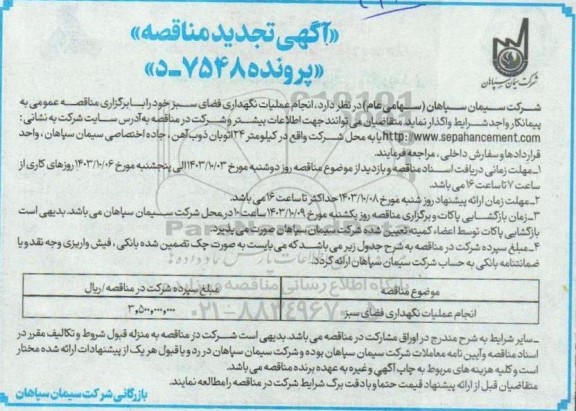 «آگهی تجدید مناقصه»
«پرونده ۷۵۴۸-د»
شرکت سیمان سپاهان
شرکت سیمان سپاهان (سهامی عام) در نظر دارد، انجام عملیات نگهداری فضای سبز خود را با برگزاری مناقصه عمومی به
پیمانکار واجد شرایط واگذار نماید. متقاضیان می توانند جهت اطلاعات بیشتر و شرکت در مناقصه به آدرس سایت شرکت به نشانی:
http://www.sepahancement.com یا به محل شرکت واقع در کیلومتر ۳۴ اتوبان ذوب آهن، جاده اختصاصی سیمان سپاهان، واحد
قراردادها و سفارش داخلی، مراجعه فرمایند.
۱ـ مهلت زمانی دریافت اسناد مناقصه و بازدید از موضوع مناقصه روز دوشنبه مورخ ۱۴۰۳/۱۰/۰۳ الی پنجشنبه مورخ ۱۴۰۳/۱۰/۰۶ روزهای کاری از
ساعت ۷ تا ساعت ۱۶ می باشد.
۲ـ مهلت زمان ارائه پیشنهاد روز شنبه مورخ ۱۴۰۳/۱۰/۰۸ حداکثر تا ساعت ۱۶ می باشد.
۳ـ زمان بازگشایی پاکات و برگزاری مناقصه روز یکشنبه مورخ ۱۴۰۳/۱۰/۰۹ ساعت ۱۰ در محل شرکت سیمان سپاهان می باشد. بدیهی است
بازگشایی پاکات توسط اعضاء کمیته تعیین شده شرکت سیمان سپاهان صورت می پذیرد.
۴ـ مبلغ سپرده شرکت در مناقصه به شرح جدول زیر می باشد که می بایست به صورت چک تضمین شده بانکی، فیش واریزی وجه نقد و یا
ضمانتنامه بانکی به حساب شرکت سیمان سپاهان ارائه گردد.
موضوع مناقصه مبلغ سپرده شرکت در مناقصه/ریال
انجام عملیات نگهداری فضای سبز ۳,۵۰۰,۰۰۰,۰۰۰
ـ سایر شرایط به شرح مندرج در اوراق مشارکت در مناقصه می باشد. بدیهی است شرکت در مناقصه به منزله قبول شروط و تکالیف مقرر در
اسناد مناقصه و آیین نامه معاملات شرکت سیمان سپاهان بوده و شرکت سیمان سپاهان در رد و یا قبول هر یک از پیشنهادات ارائه شده مختار
است و کلیه هزینه های مربوط به چاپ آگهی و غیره به عهده برنده مناقصه می باشد.
متقاضیان قبل از ارائه پیشنهاد قیمت حتما و با دقت برگ شرایط شرکت در مناقصه را مطالعه نمایند.
بازرگانی شرکت سیمان سپاهان
پایگاه اطلاع رسانی مناقصه و مزایده
۰۲۱-۸۸۳۴۹۶۷۰